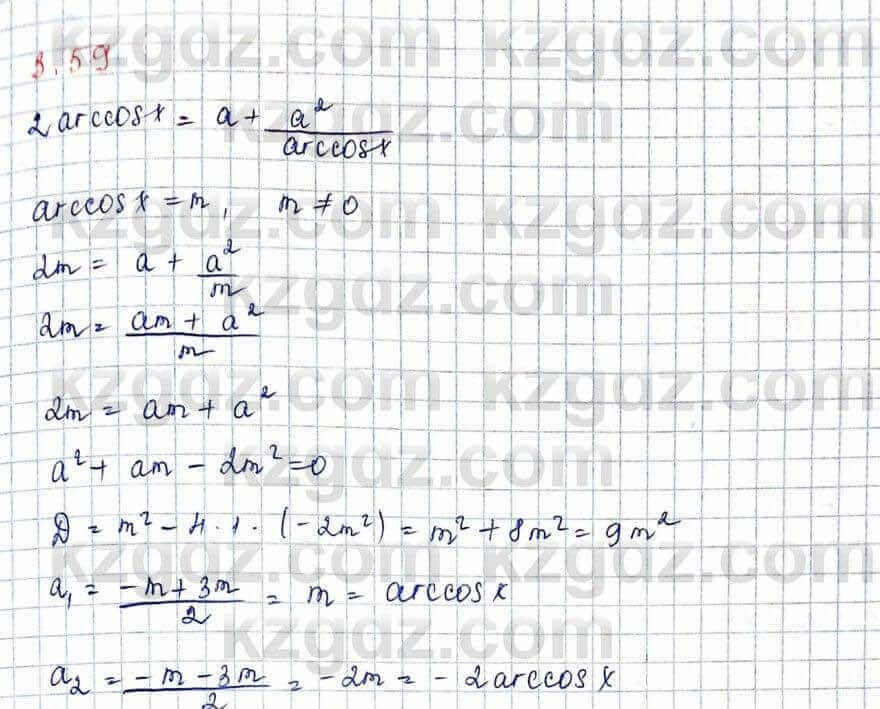 3.59
2 arccos x = a + a² / arccos x
arccos x = m, m ≠ 0
2m = a + a² / m
2m = am + a² / m
2m = am + a²
a² + am - 2m² = 0
D = m² - 4 · 1 · (-2m²) = m² + 8m² = 9m²
a₁ = -m + 3m / 2 = m = arccos x
a₂ = -m - 3m / 2 = -2m = - 2 arccos x
kzgdz.com
kzgdz.com
kzgdz.com
kzgdz.com
kzgdz.com
kzgdz.com
kzgdz.com
kzgdz.com
kzgdz.com
kzgdz.com
kzgdz.com
kzgdz.com